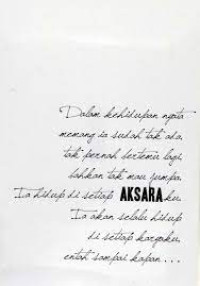 Dalam kehidupan nyata
memang ia sudah tak ada,
tak pernah bertemu lagi,
bahkan tak mau jumpa.
Ia hidup di setiap AKSARAku.
Ia akan selalu hidup
di setiap karyaku,
entah sampai kapan ...